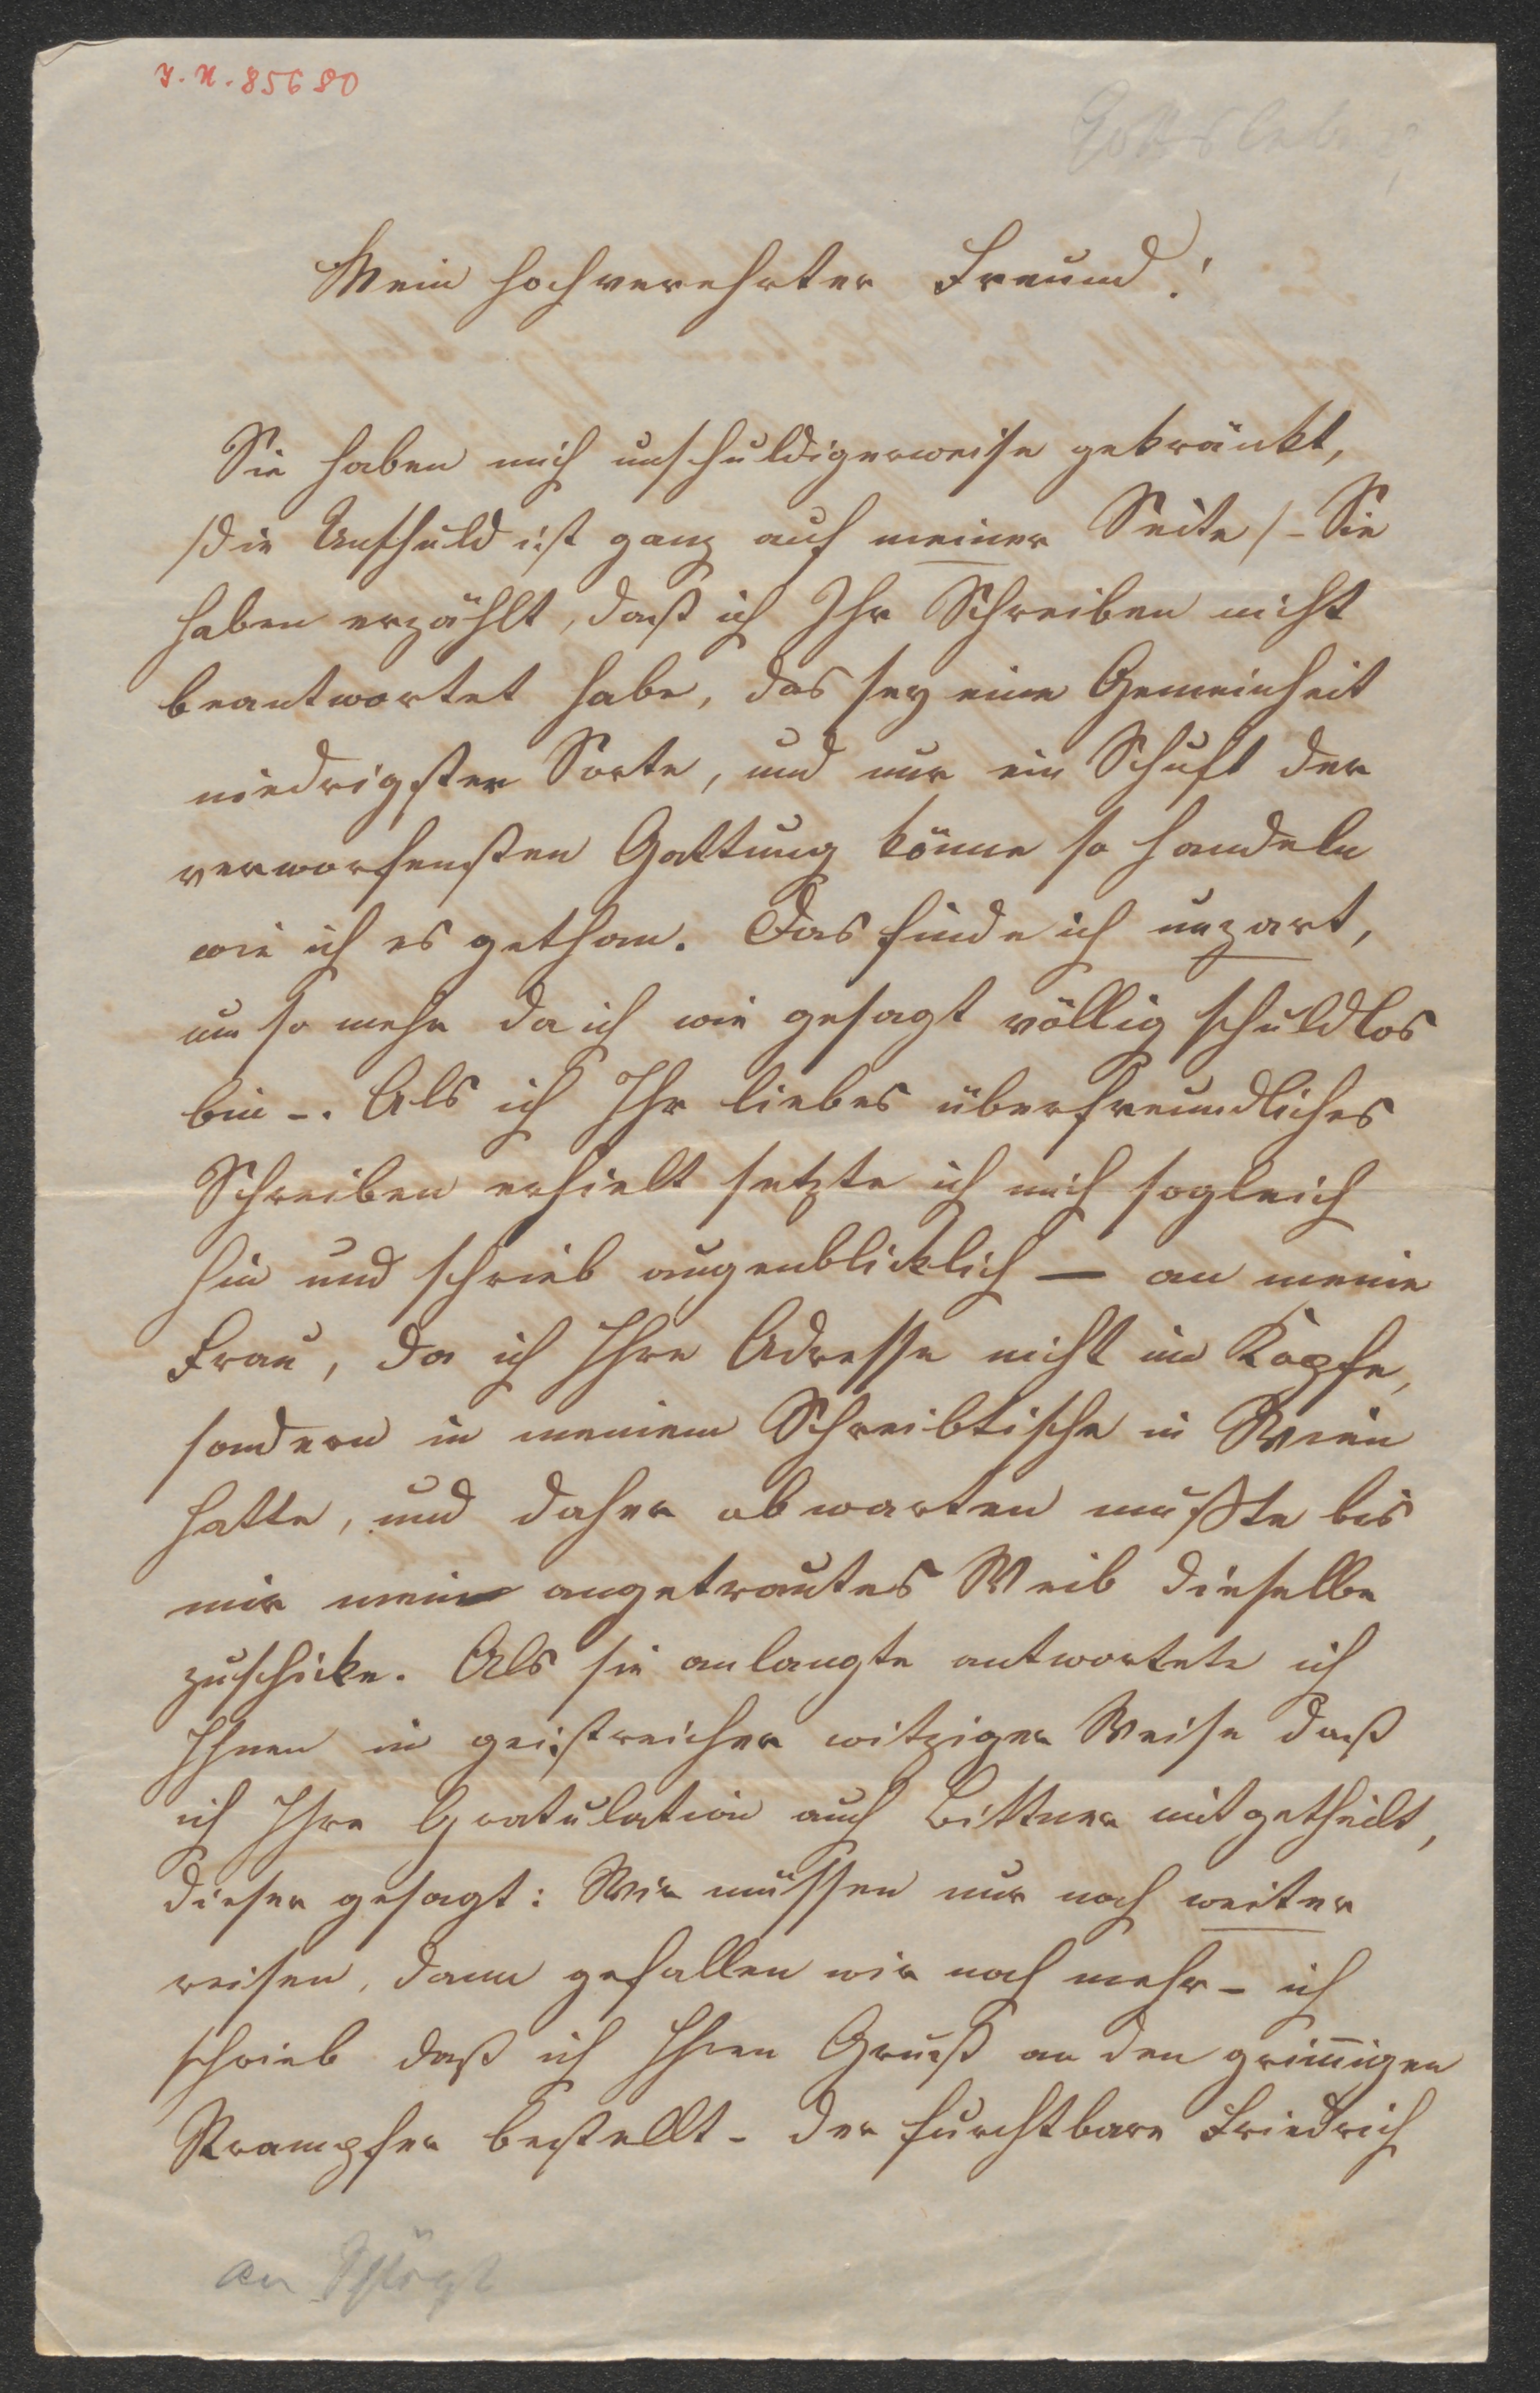 I. N. 85680
Gottsleben
Mein hochverehrter Freund!
Sie haben mich unschuldigerweise gekränkt,
/die Unschuld ist ganz auf meiner Seite/ – Sie
haben erzählt, daß ich Ihr Schreiben nicht
beantwortet habe, das sey eine Gemeinheit
niedrigster Sorte, und nur ein Schuft der
verworfensten Gattung könne so handeln
wie ich es gethan. Das finde ich unzart,
um so mehr da ich wie gesagt völlig schuldlos
bin –. Als ich Ihr liebes überfreundliches
Schreiben erhielt setzte ich mich sogleich
hin und schrieb augenblicklich — an meine
Frau, da ich Ihre Adresse nicht im Kopfe,
sondern in meinem Schreibtische in Wien
hatte, und daher abwarten mußte bis
mir mein angetrautes Weib dieselbe
zuschicke. Als sie anlangte antwortete ich
Ihnen in geistreicher witziger Weise daß
ich Ihre Gratulation auch Bittner mitgetheilt,
dieser gesagt: Wir müssen nur noch weiter
reisen, dann gefallen wir noch mehr – ich
schrieb daß ich Ihren Gruß an den grim̅igen
Strampfer bestellt – der furchtbare Friedrich
an